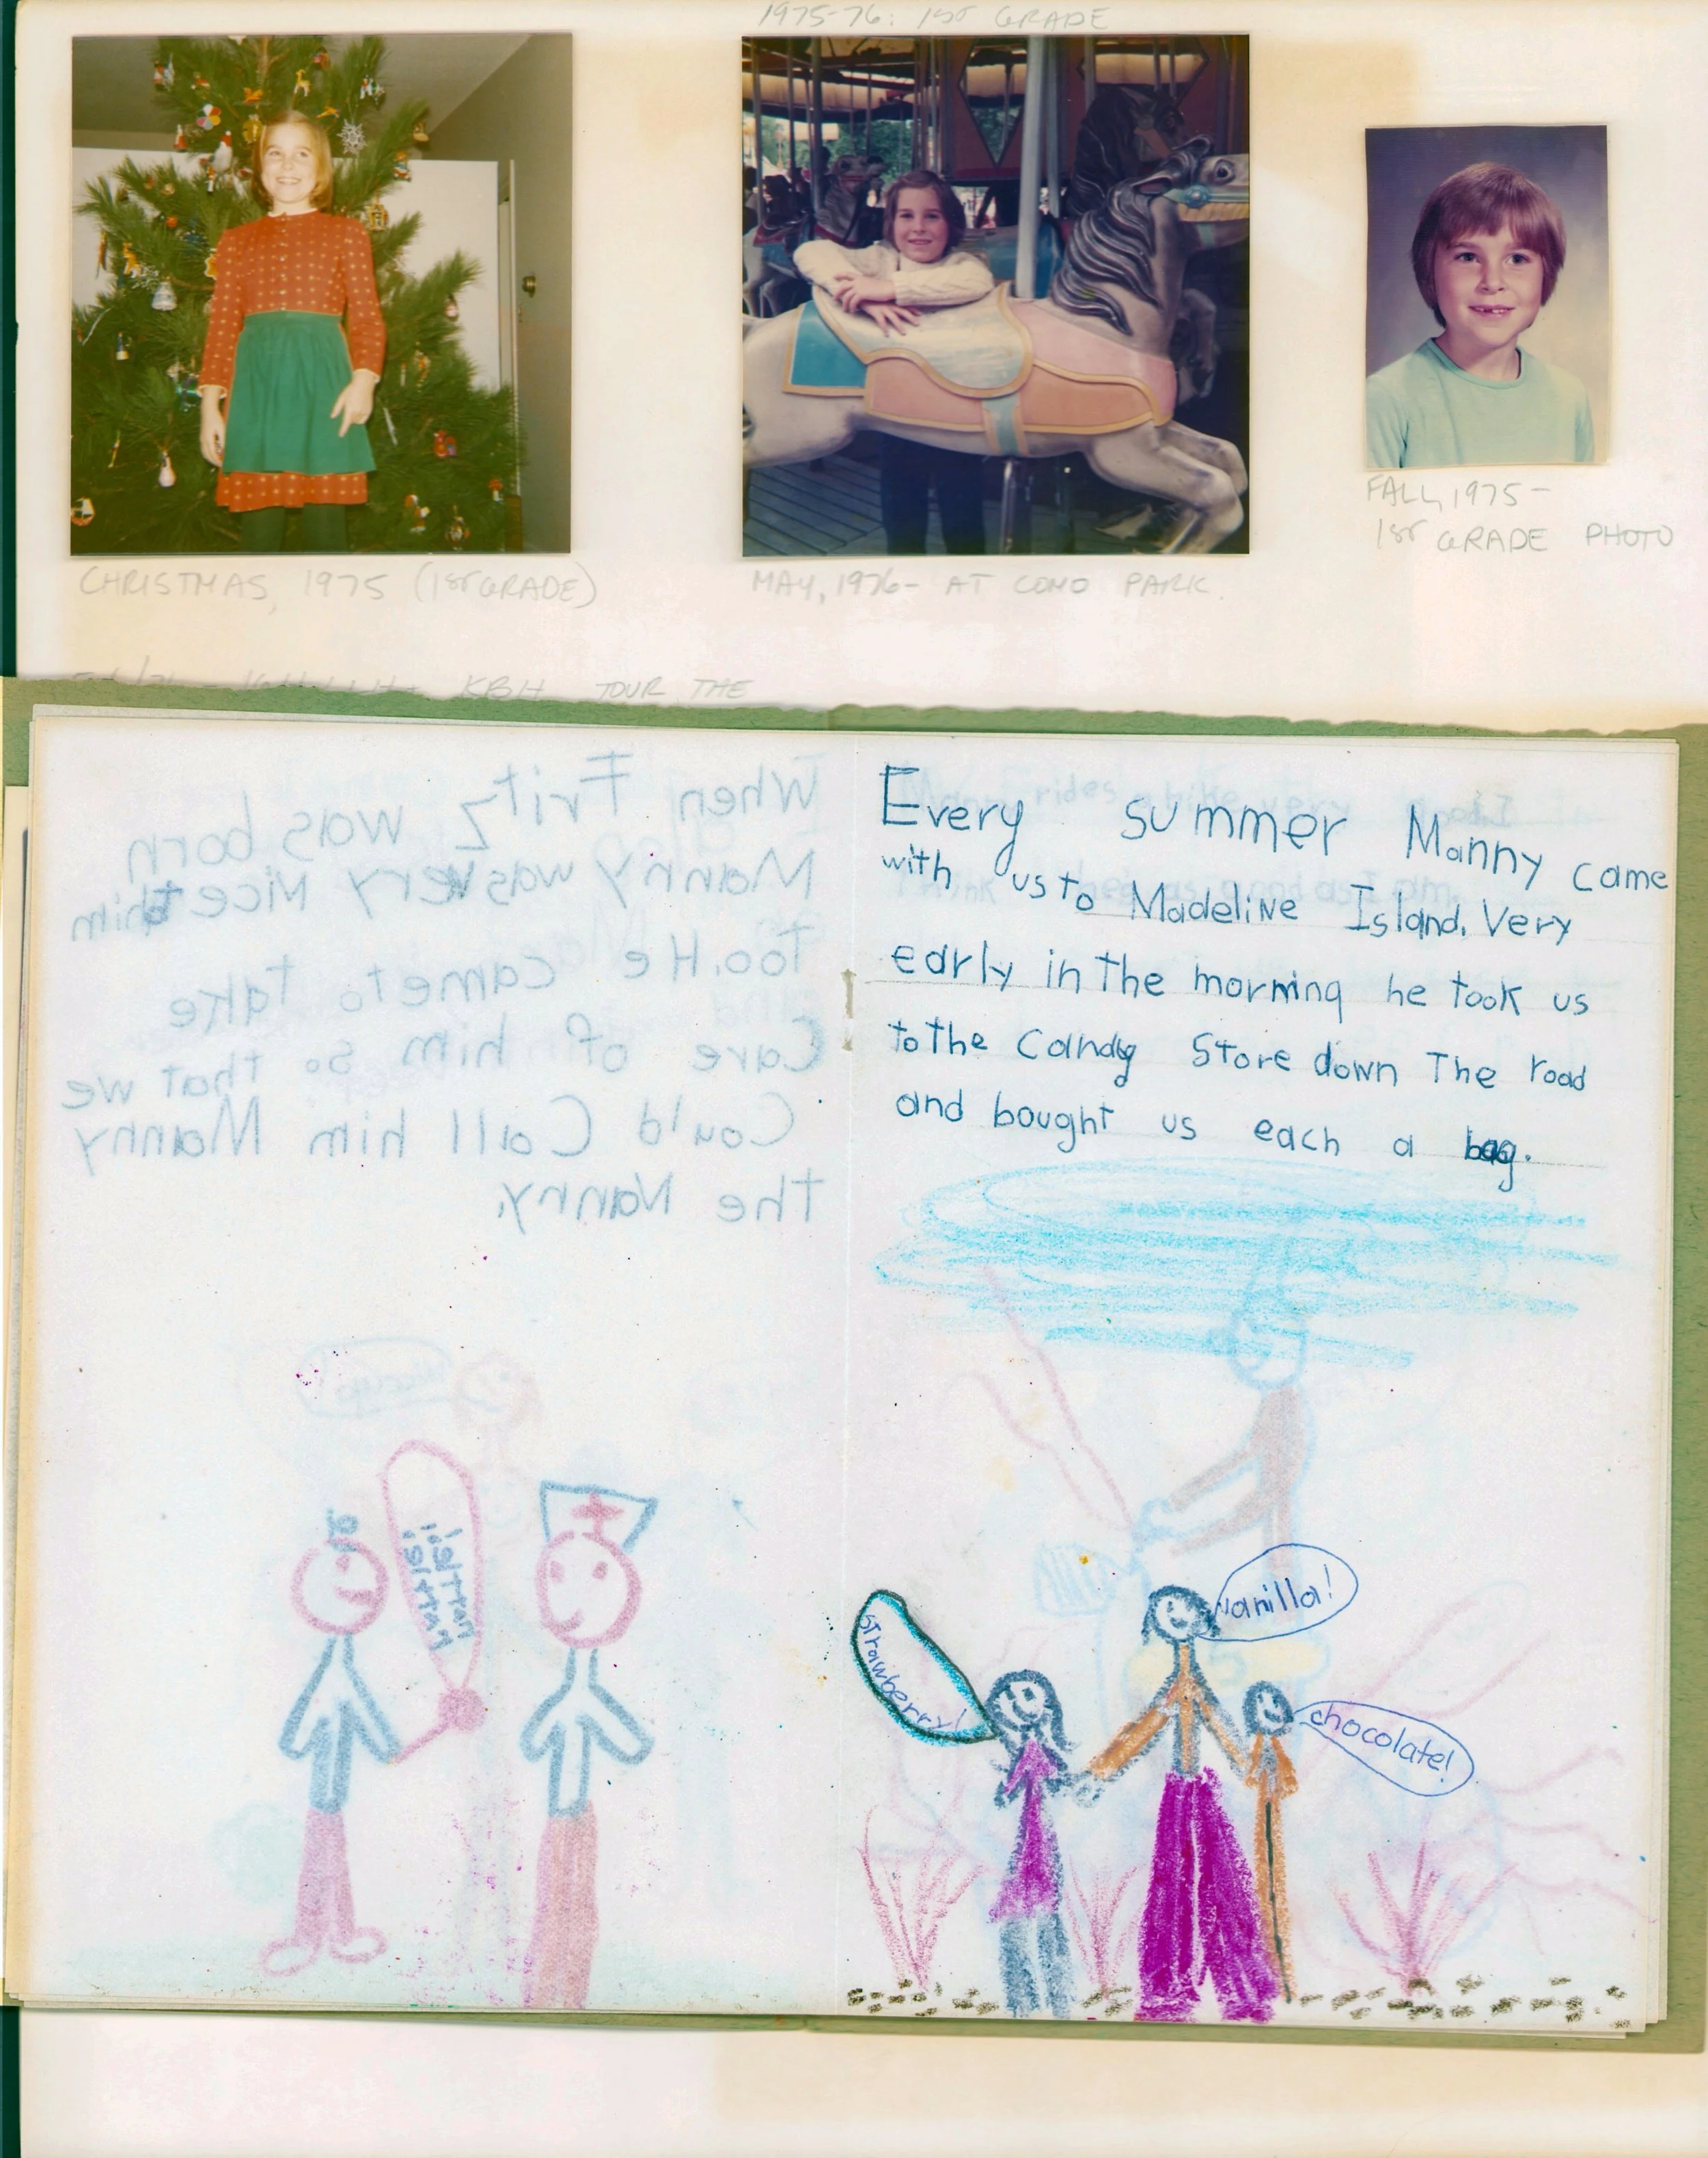 1975-76: 1ST GRADE
CHRISTMAS, 1975 (1ST GRADE)
MAY, 1976- AT COMO PARK.
FALL, 1975-
1ST GRADE PHOTO
KBH TOUR THE
When Fritz was born
Manny was very Nice to him
Too. He came to Take
Care of him so that we
Could Call him Manny
The Nanny.
Every summer Manny came
with us to Madeline Island. Very
early in the morning he took us
to the Candy Store down The road
and bought us each a bag.
vanilla!
strawberry!
chocolate!